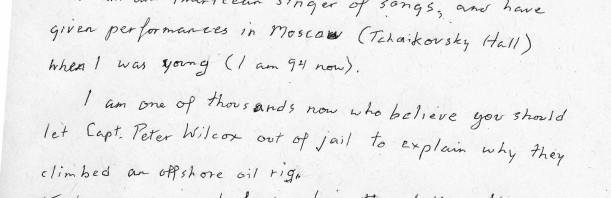 an American singer of songs, and have
given performances in Moscow (Tchaikovsky Hall)
when I was young (I am 94 now).
I am one of thousands now who believe you should
let Capt. Peter Wilcox out of jail to explain why they
climbed an offshore oil rig